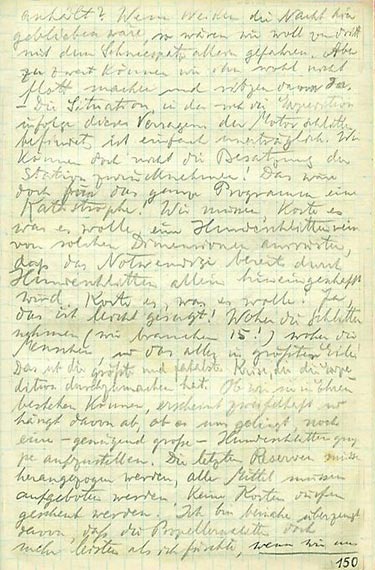 anhält? Wenn die Nacht hin
geblieben wäre, so wären wir wohl zu dritt
mit dem Schneespatz allein gefahren. Aber
zu zweit können wir ihn wohl nicht
flott machen und sitzen davor fest.
- Die Situation, in der sich die Expedition
infolge dieses Versagens der Motorschlitten
befindet, ist einfach unerträglich. Ich
können doch nicht die Besatzung der
Station zurücknehmen! Das wäre
doch für das ganze Programm eine
Katastrophe. Wir müssen, koste es
was es wolle, eine Hundeschlittenreise
von solchen Dimensionen ausrüsten
daß das Notwendige bereits durch
Hundeschlitten allein hineingeschafft
wird. Koste es, was es wolle! Ja,
das ist leicht gesagt! Woher die Schlitten
nehmen (wir brauchen 15!) woher die
Menschen, und das alles in größter Eile.
Das ist die größte und fatalste Krise, die die Expe
dition durchzumachen hat. Ob
bestehen können, erscheint zweifelhaft u.
hängt davon ab, ob es uns gelingt, noch
eine - genügend große - Hundeschlittengrup
pe aufzustellen. Die letzten Reserven müssen
herangezogen werden, alle Mittel müssen
aufgeboten werden. Keine Kosten dürfen
gescheut werden. Ich bin beinahe überzeugt
davon, daß die Propellerschlitten doch
mehr leisten als ich fürchte, wenn wir nur
150